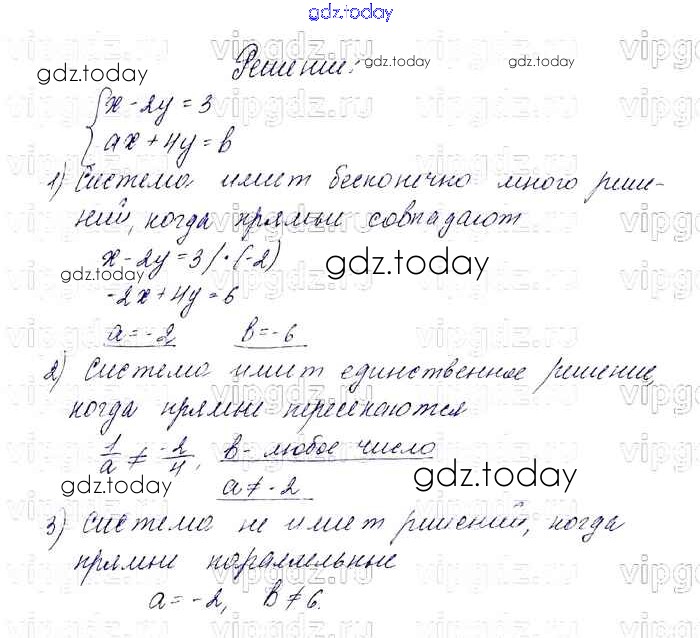 gdz.today
Решение:
gdz.today gdz.today gdz.today
{x - 2y = 3
{ax + 4y = b
1) Система имеет бесконечно много реше-
ний, когда прямые совпадают
x - 2y = 3 / · (-2)
gdz.today
gdz.today
-2x + 4y = 6
a = -2, b = -6
2) Система имеет единственное решение,
когда прямые пересекаются
1/a ≠ -2/4, b - любое число
gdz.today
a ≠ -2
gdz.today
3) Система не имеет решений, когда
прямые параллельные
a = -2, b ≠ 6.